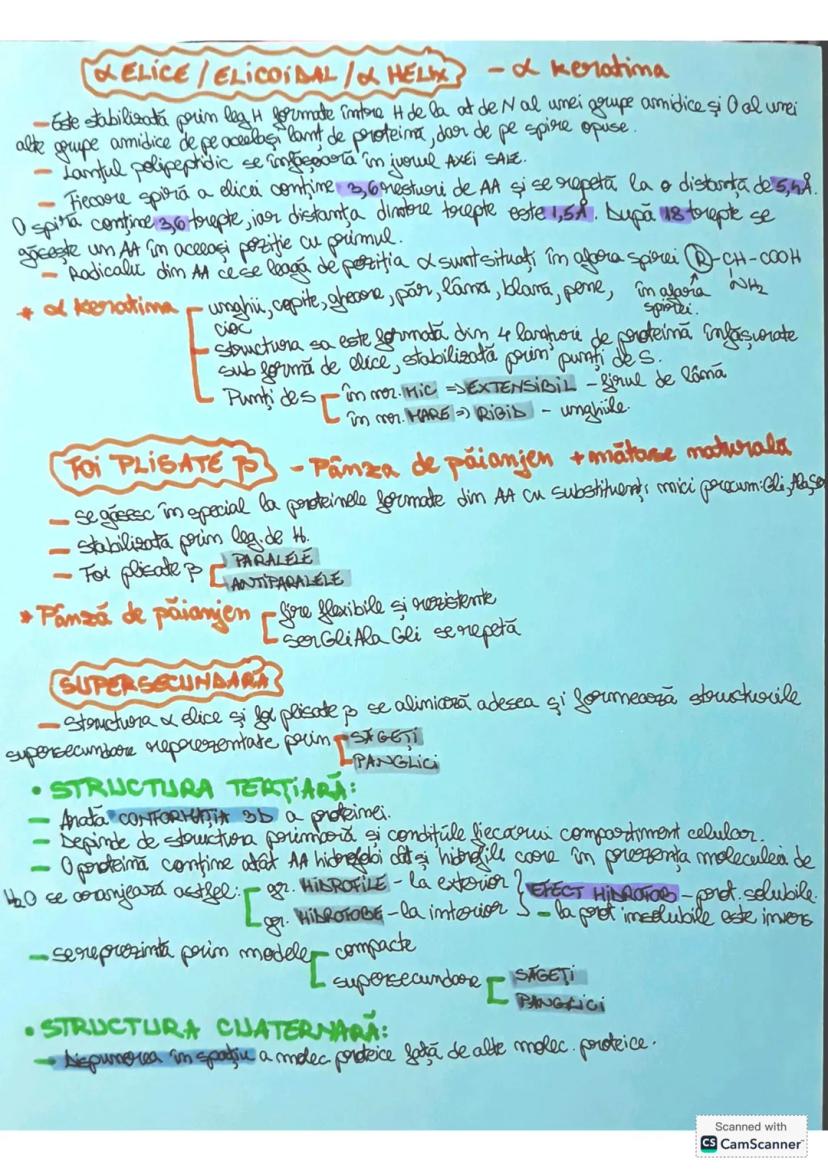 α ELICE / ELICOIDAL / α HELIX - α keratina
- Este stabilizată prin leg H formate între H de la at de N al unei grupe amidice și O al unei
alte grupe amidice de pe același lanț de proteină, dar de pe spire opuse.
- Lanțul polipeptidic se înfășoară în jurul AXEI SALE.
- Fiecare spiră a elicei conține 3,6 resturi de AA și se repetă la o distanță de 5,4Å.
O spiră conține 3,6 trepte, iar distanța dintre trepte este 1,5Å. După 18 trepte se
găsește un AA în aceeași poziție cu primul.
- Radicalii din AA ce se leagă de poziția α sunt situați în afara spirei R-CH-COOH
NH2
în afara
spirei.
* α keratina - unghii, copite, gheare, păr, lână, blană, pene,
cioc
- structura sa este formată din 4 lanțuri de proteină înfășurate
sub formă de elice, stabilizată prin punți de S.
- Punți de S în nr. MIC => EXTENSIBIL - firul de lână
în nr. MARE => RIGID - unghiile.
FOI PLISATE β - Pânza de păianjen + mătase naturală
- se găsesc în special la proteinele formate din AA cu substituenți mici precum: Gli, Ala, Ser
- stabilizată prin leg. de H.
- Foi plisate β PARALELE
ANTIPARALELE
* Pânză de păianjen fire flexibile și rezistente
Ser Gli Ala Gli se repetă
SUPERSECUNDARĂ
- structura α elice și foi plisate β se aliniază adesea și formează structurile
supersecundare reprezentate prin SĂGEȚI
PANGLICI
• STRUCTURA TERȚIARĂ:
- Arată CONFORMAȚIA 3D a proteinei.
- Depinde de structura primară și condițiile fiecărui compartiment celular.
- O proteină conține atât AA hidrofobi cât și hidrofile care în prezența moleculelei de
H2O se aranjează astfel: gr. HIDROFILE - la exterior } EFECT HIDROFOB - prot. solubile.
gr. HIDROFOBE - la interior - la prot insolubile este invers
- se reprezintă prin modele compacte
supersecundare SĂGEȚI
PANGLICI
• STRUCTURA CUATERNARĂ:
→ Dispunerea în spațiu a molec. proteice față de alte molec. proteice.
Scanned with
CS CamScanner